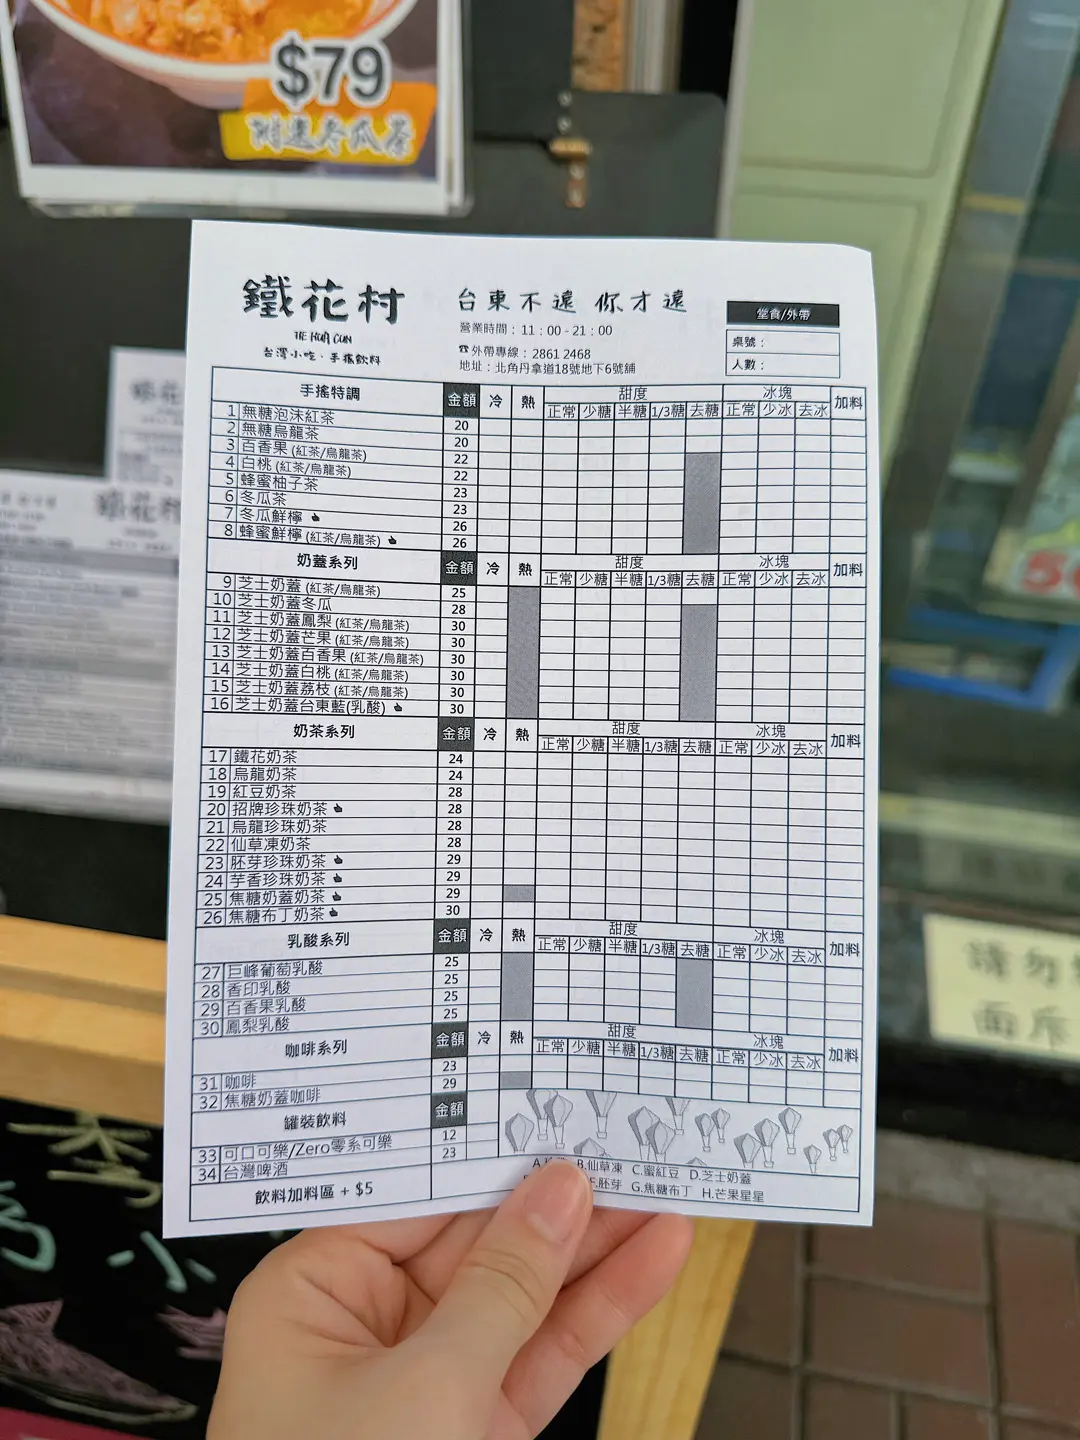 $79
附送冬瓜茶
鐵花村
TIE HUA CUN
台灣小吃．手搖飲料
台東不遠 你才遠
營業時間：11：00 - 21：00
☎外帶專線：2861 2468
地址：北角丹拿道18號地下6號舖
堂食/外帶
桌號：
人數：
手搖特調 金額 冷 熱 甜度 冰塊 加料
正常 少糖 半糖 1/3糖 去糖 正常 少冰 去冰
1 無糖泡沫紅茶 20
2 無糖烏龍茶 20
3 百香果 (紅茶/烏龍茶) 22
4 白桃 (紅茶/烏龍茶) 22
5 蜂蜜柚子茶 23
6 冬瓜茶 23
7 冬瓜鮮檸 26
8 蜂蜜鮮檸 (紅茶/烏龍茶) 26
奶蓋系列 金額 冷 熱 甜度 冰塊 加料
正常 少糖 半糖 1/3糖 去糖 正常 少冰 去冰
9 芝士奶蓋 (紅茶/烏龍茶) 25
10 芝士奶蓋冬瓜 28
11 芝士奶蓋鳳梨 (紅茶/烏龍茶) 30
12 芝士奶蓋芒果 (紅茶/烏龍茶) 30
13 芝士奶蓋百香果 (紅茶/烏龍茶) 30
14 芝士奶蓋白桃 (紅茶/烏龍茶) 30
15 芝士奶蓋荔枝 (紅茶/烏龍茶) 30
16 芝士奶蓋台東藍(乳酸) 30
奶茶系列 金額 冷 熱 甜度 冰塊 加料
正常 少糖 半糖 1/3糖 去糖 正常 少冰 去冰
17 鐵花奶茶 24
18 烏龍奶茶 24
19 紅豆奶茶 28
20 招牌珍珠奶茶 28
21 烏龍珍珠奶茶 28
22 仙草凍奶茶 28
23 胚芽珍珠奶茶 29
24 芋香珍珠奶茶 29
25 焦糖奶蓋奶茶 29
26 焦糖布丁奶茶 30
乳酸系列 金額 冷 熱 甜度 冰塊 加料
正常 少糖 半糖 1/3糖 去糖 正常 少冰 去冰
27 巨峰葡萄乳酸 25
28 香印乳酸 25
29 百香果乳酸 25
30 鳳梨乳酸 25
咖啡系列 金額 冷 熱 甜度 冰塊 加料
正常 少糖 半糖 1/3糖 去糖 正常 少冰 去冰
31 咖啡 23
32 焦糖奶蓋咖啡 29
罐裝飲料 金額
33 可口可樂/Zero零系可樂 12
34 台灣啤酒 23
飲料加料區 + $5
B.仙草凍 C.蜜紅豆 D.芝士奶蓋
F.胚芽 G.焦糖布丁 H.芒果星星
請勿
面斥
小